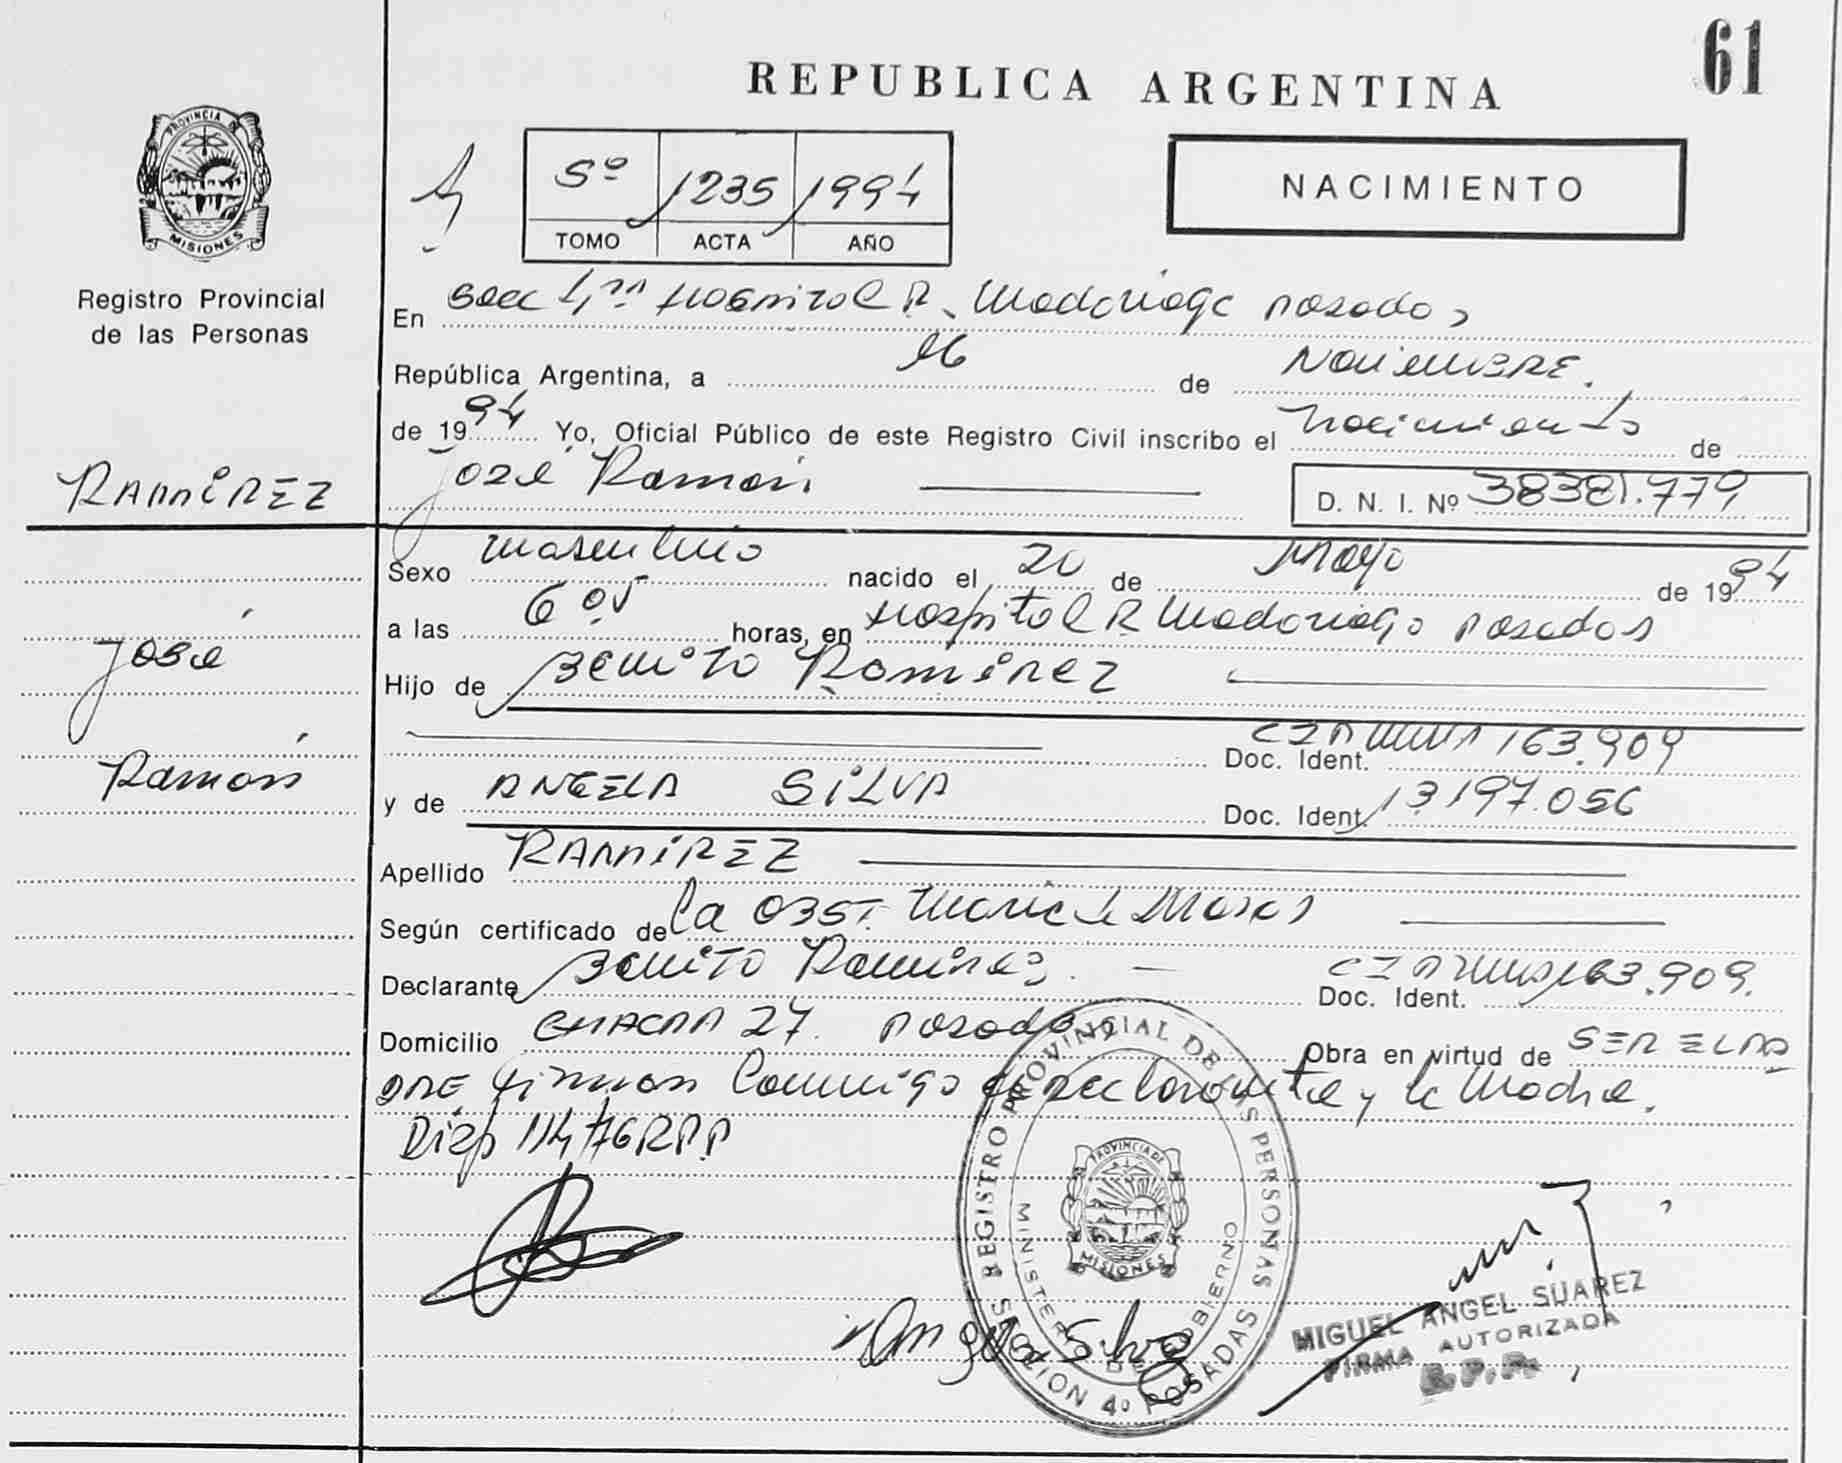 61
REPUBLICA ARGENTINA
PROVINCIA DE
MISIONES
Registro Provincial
de las Personas
5º 1235 1994
TOMO ACTA AÑO
NACIMIENTO
En Secc 1ra Hospital R. Madariaga Posadas
República Argentina, a 16 de Noviembre.
de 1994 Yo, Oficial Público de este Registro Civil inscribo el nacimiento de
RAMIREZ
José Ramón D. N. I. Nº 38381.779
Sexo masculino nacido el 20 de Mayo de 1994
a las 6 05 horas, en Hospital R Madariaga Posadas
José
Hijo de Benito Ramirez
Doc. Ident. 163.909
Ramón
y de ANGELA SILVA Doc. Ident. 13197.056
Apellido RAMIREZ
Según certificado de la OBST. Maria
Declarante Benito Ramirez. Doc. Ident. 163.909.
Domicilio CHACRA 27. Posadas Obra en virtud de SER EL PA
DRE firman Conmigo el declarante y la Madre.
Disp 114/76 RPP
REGISTRO PROVINCIAL DE LAS PERSONAS
MINISTERIO DE GOBIERNO
PROVINCIA DE
MISIONES
SECCION 4º POSADAS
Angela Silva
MIGUEL ANGEL SUAREZ
FIRMA AUTORIZADA
R.P.P.